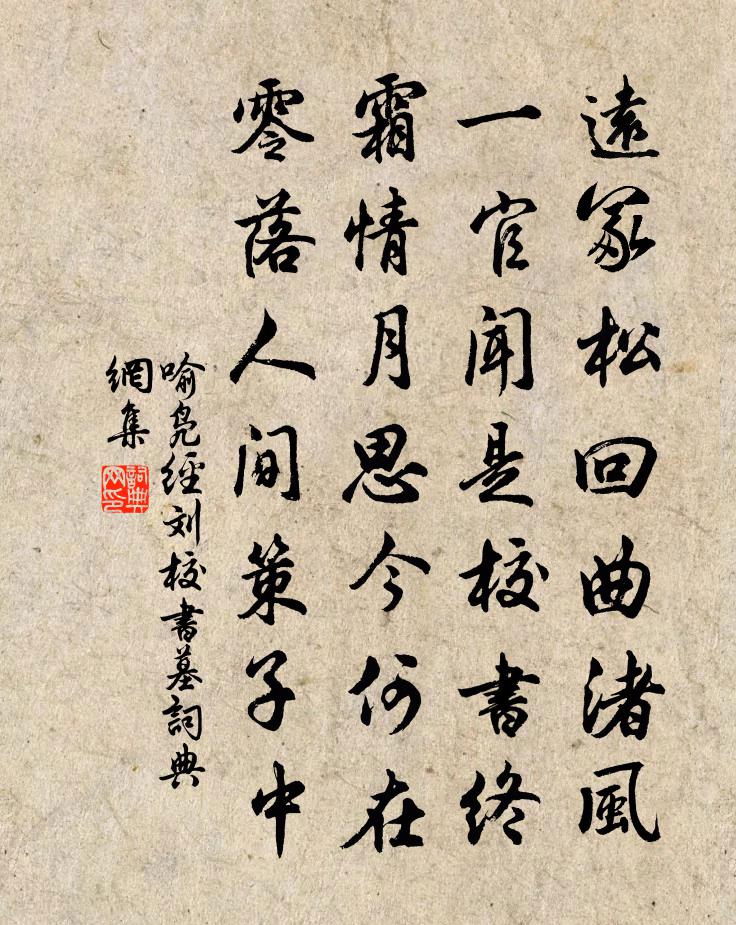 遠冢松回曲渚風
一官聞是校書終
霜情月思今何在
零落人间策子中
喻凫經刘校書墓詞典
網集
詞典
网印